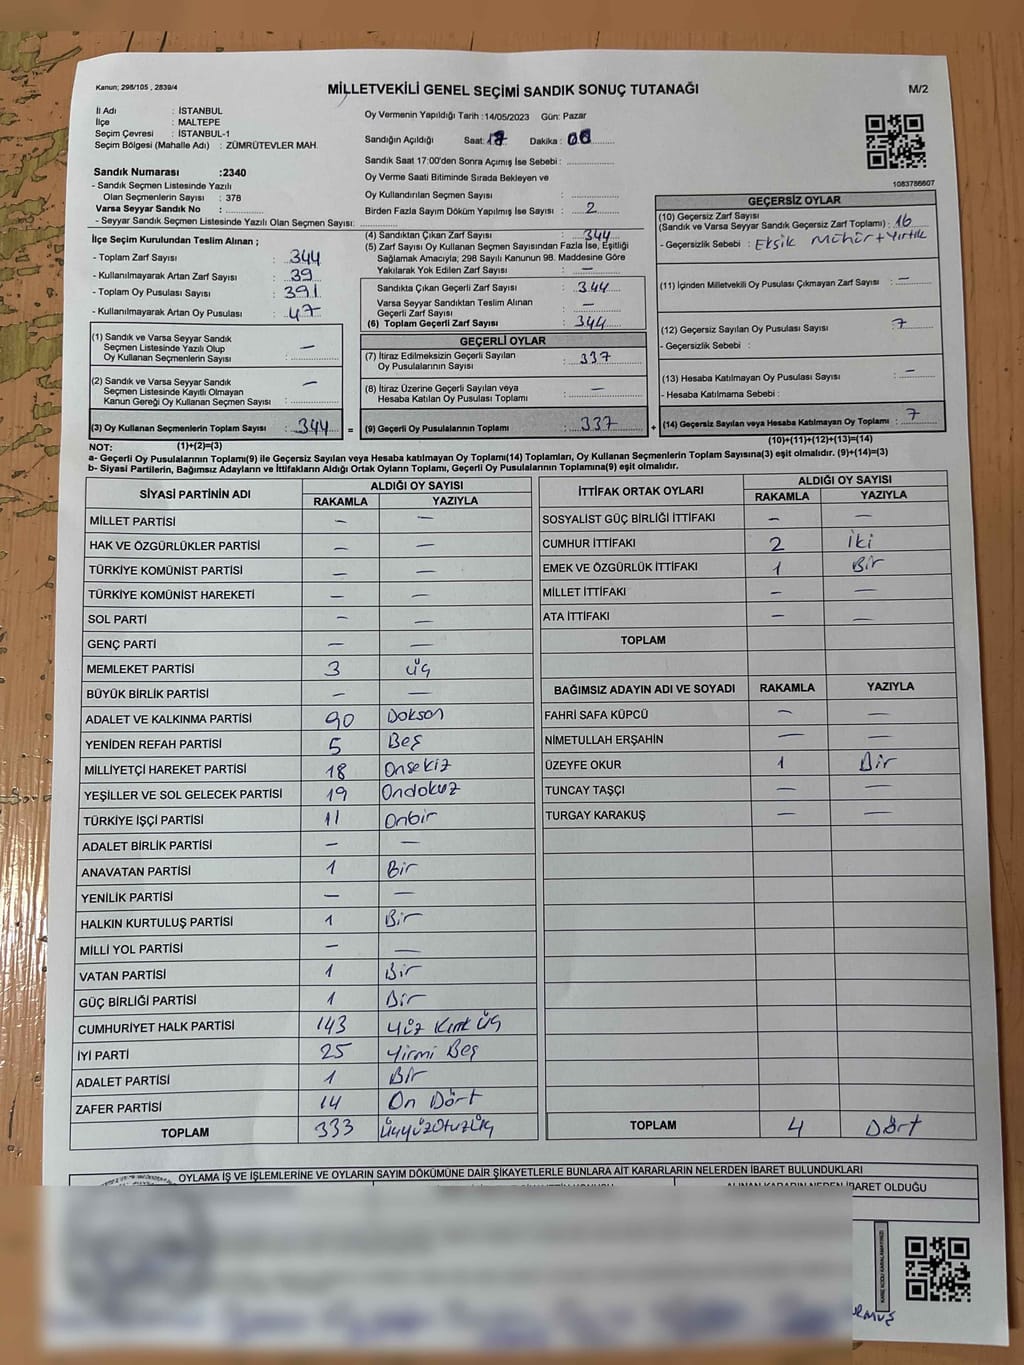 Kanun; 298/105 , 2839/4
MİLLETVEKİLİ GENEL SEÇİMİ SANDIK SONUÇ TUTANAĞI
M/2
İl Adı : İSTANBUL
İlçe : MALTEPE
Seçim Çevresi : İSTANBUL-1
Seçim Bölgesi (Mahalle Adı) : ZÜMRÜTEVLER MAH.
Oy Vermenin Yapıldığı Tarih : 14/05/2023 Gün: Pazar
Sandığın Açıldığı Saat: 17 Dakika : 00
Sandık Saat 17:00'den Sonra Açımış İse Sebebi :
Oy Verme Saati Bitiminde Sırada Bekleyen ve
Oy Kullandırılan Seçmen Sayısı :
Birden Fazla Sayım Döküm Yapılmış İse Sayısı : 2
1083786607
Sandık Numarası :2340
- Sandık Seçmen Listesinde Yazılı
Olan Seçmenlerin Sayısı : 378
Varsa Seyyar Sandık No :
- Seyyar Sandık Seçmen Listesinde Yazılı Olan Seçmen Sayısı:
İlçe Seçim Kurulundan Teslim Alınan ;
- Toplam Zarf Sayısı : 344
- Kullanılmayarak Artan Zarf Sayısı : 39
- Toplam Oy Pusulası Sayısı : 391
- Kullanılmayarak Artan Oy Pusulası : 47
(1) Sandık ve Varsa Seyyar Sandık
Seçmen Listesinde Yazılı Olup
Oy Kullanan Seçmenlerin Sayısı : —
(2) Sandık ve Varsa Seyyar Sandık
Seçmen Listesinde Kayıtlı Olmayan
Kanun Gereği Oy Kullanan Seçmen Sayısı : —
(3) Oy Kullanan Seçmenlerin Toplam Sayısı : 344 =
(1)+(2)=(3)
(4) Sandıktan Çıkan Zarf Sayısı : 344
(5) Zarf Sayısı Oy Kullanan Seçmen Sayısından Fazla İse, Eşitliği
Sağlamak Amacıyla; 298 Sayılı Kanunun 98. Maddesine Göre
Yakılarak Yok Edilen Zarf Sayısı : —
Sandıkta Çıkan Geçerli Zarf Sayısı : 344
Varsa Seyyar Sandıktan Teslim Alınan
Geçerli Zarf Sayısı : —
(6) Toplam Geçerli Zarf Sayısı : 344
GEÇERLİ OYLAR
(7) İtiraz Edilmeksizin Geçerli Sayılan
Oy Pusulalarının Sayısı : 337
(8) İtiraz Üzerine Geçerli Sayılan veya
Hesaba Katılan Oy Pusulası Toplamı : —
(9) Geçerli Oy Pusulalarının Toplamı : 337 +
GEÇERSİZ OYLAR
(10) Geçersiz Zarf Sayısı
(Sandık ve Varsa Seyyar Sandık Geçersiz Zarf Toplamı) : 16
- Geçersizlik Sebebi : Eksik Mühür+Yırtık
(11) İçinden Milletvekili Oy Pusulası Çıkmayan Zarf Sayısı : —
(12) Geçersiz Sayılan Oy Pusulası Sayısı : 7
- Geçersizlik Sebebi :
(13) Hesaba Katılmayan Oy Pusulası Sayısı : —
- Hesaba Katılmama Sebebi :
(14) Geçersiz Sayılan veya Hesaba Katılmayan Oy Toplamı : 7
(10)+(11)+(12)+(13)=(14)
NOT:
a- Geçerli Oy Pusulası Toplamı(9) ile Geçersiz Sayılan veya Hesaba katılmayan Oy Toplamı(14) Toplamları, Oy Kullanan Seçmenlerin Toplam Sayısına(3) eşit olmalıdır. (9)+(14)=(3)
b- Siyasi Partilerin, Bağımsız Adayların ve İttifakların Aldığı Ortak Oyların Toplamı, Geçerli Oy Pusulalarının Toplamına(9) eşit olmalıdır.
SİYASİ PARTİNİN ADI ALDIĞI OY SAYISI
RAKAMLA YAZIYLA
MİLLET PARTİSİ — —
HAK VE ÖZGÜRLÜKLER PARTİSİ — —
TÜRKİYE KOMÜNİST PARTİSİ — —
TÜRKİYE KOMÜNİST HAREKETİ — —
SOL PARTİ — —
GENÇ PARTİ — —
MEMLEKET PARTİSİ 3 üç
BÜYÜK BİRLİK PARTİSİ — —
ADALET VE KALKINMA PARTİSİ 90 Doksan
YENİDEN REFAH PARTİSİ 5 Beş
MİLLİYETÇİ HAREKET PARTİSİ 18 Onsekiz
YEŞİLLER VE SOL GELECEK PARTİSİ 19 Ondokuz
TÜRKİYE İŞÇİ PARTİSİ 11 Onbir
ADALET BİRLİK PARTİSİ — —
ANAVATAN PARTİSİ 1 Bir
YENİLİK PARTİSİ — —
HALKIN KURTULUŞ PARTİSİ 1 Bir
MİLLİ YOL PARTİSİ — —
VATAN PARTİSİ 1 Bir
GÜÇ BİRLİĞİ PARTİSİ 1 Bir
CUMHURİYET HALK PARTİSİ 143 Yüz Kırk üç
İYİ PARTİ 25 Yirmi Beş
ADALET PARTİSİ 1 Bir
ZAFER PARTİSİ 14 On Dört
TOPLAM 333 üçyüzotuzüç
İTTİFAK ORTAK OYLARI ALDIĞI OY SAYISI
RAKAMLA YAZIYLA
SOSYALİST GÜÇ BİRLİĞİ İTTİFAKI — —
CUMHUR İTTİFAKI 2 İki
EMEK VE ÖZGÜRLÜK İTTİFAKI 1 Bir
MİLLET İTTİFAKI — —
ATA İTTİFAKI — —
TOPLAM
BAĞIMSIZ ADAYIN ADI VE SOYADI RAKAMLA YAZIYLA
FAHRİ SAFA KÜPCÜ — —
NİMETULLAH ERŞAHİN — —
ÜZEYFE OKUR 1 Bir
TUNCAY TAŞÇI — —
TURGAY KARAKUŞ — —
TOPLAM 4 Dört
OYLAMA İŞ VE İŞLEMLERİNE VE OYLARIN SAYIM DÖKÜMÜNE DAİR ŞİKAYETLERLE BUNLARA AİT KARARLARIN NELERDEN İBARET BULUNDUKLARI
ALINAN KARARIN NEDEN İBARET OLDUĞU